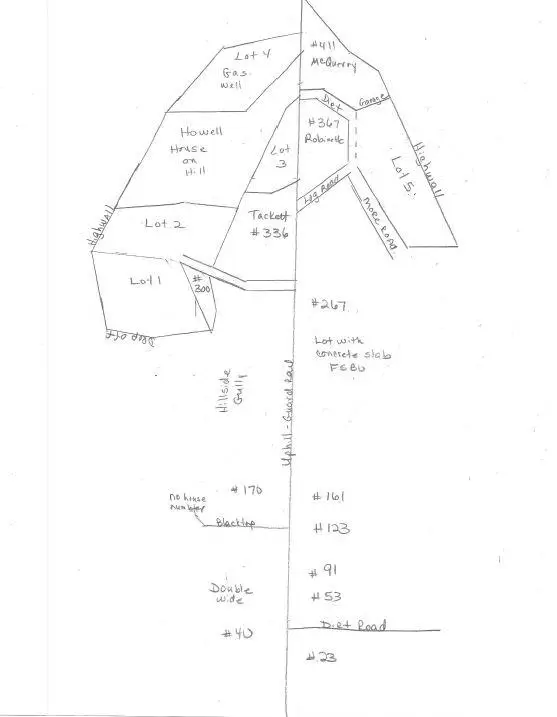 Lot 4
Gas
well
#411
McQurry
Dirt
Garage
#367
Robinette
Howell
House
on
Hill
Lot
3
Highwall
Lot 5
Log Road
Highwall
Lot 2
Tackett
#336
More Road
Lot 1
#
300
Drop off
#267
Lot with
concrete slab
FSBO
Hillside
Gully
Uphill - Guard Rail
#170
#161
no house
number
Blacktop
#123
#91
Double
wide
#53
Dirt Road
#40
#23